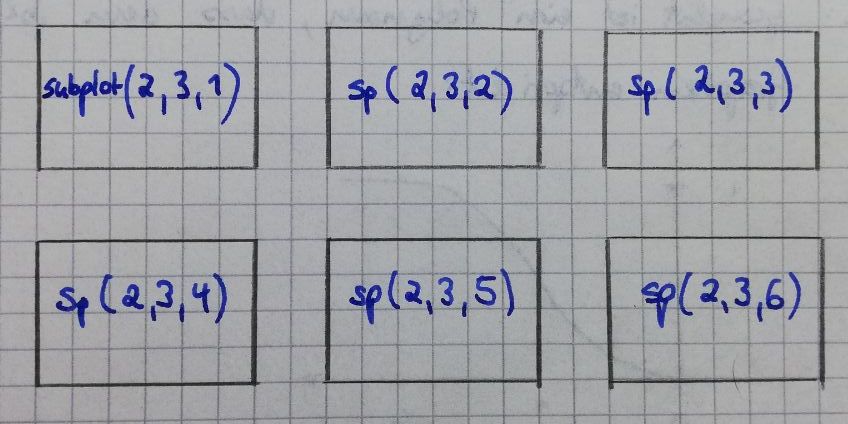 subplot(2,3,1) sp(2,3,2) sp(2,3,3)
sp(2,3,4) sp(2,3,5) sp(2,3,6)